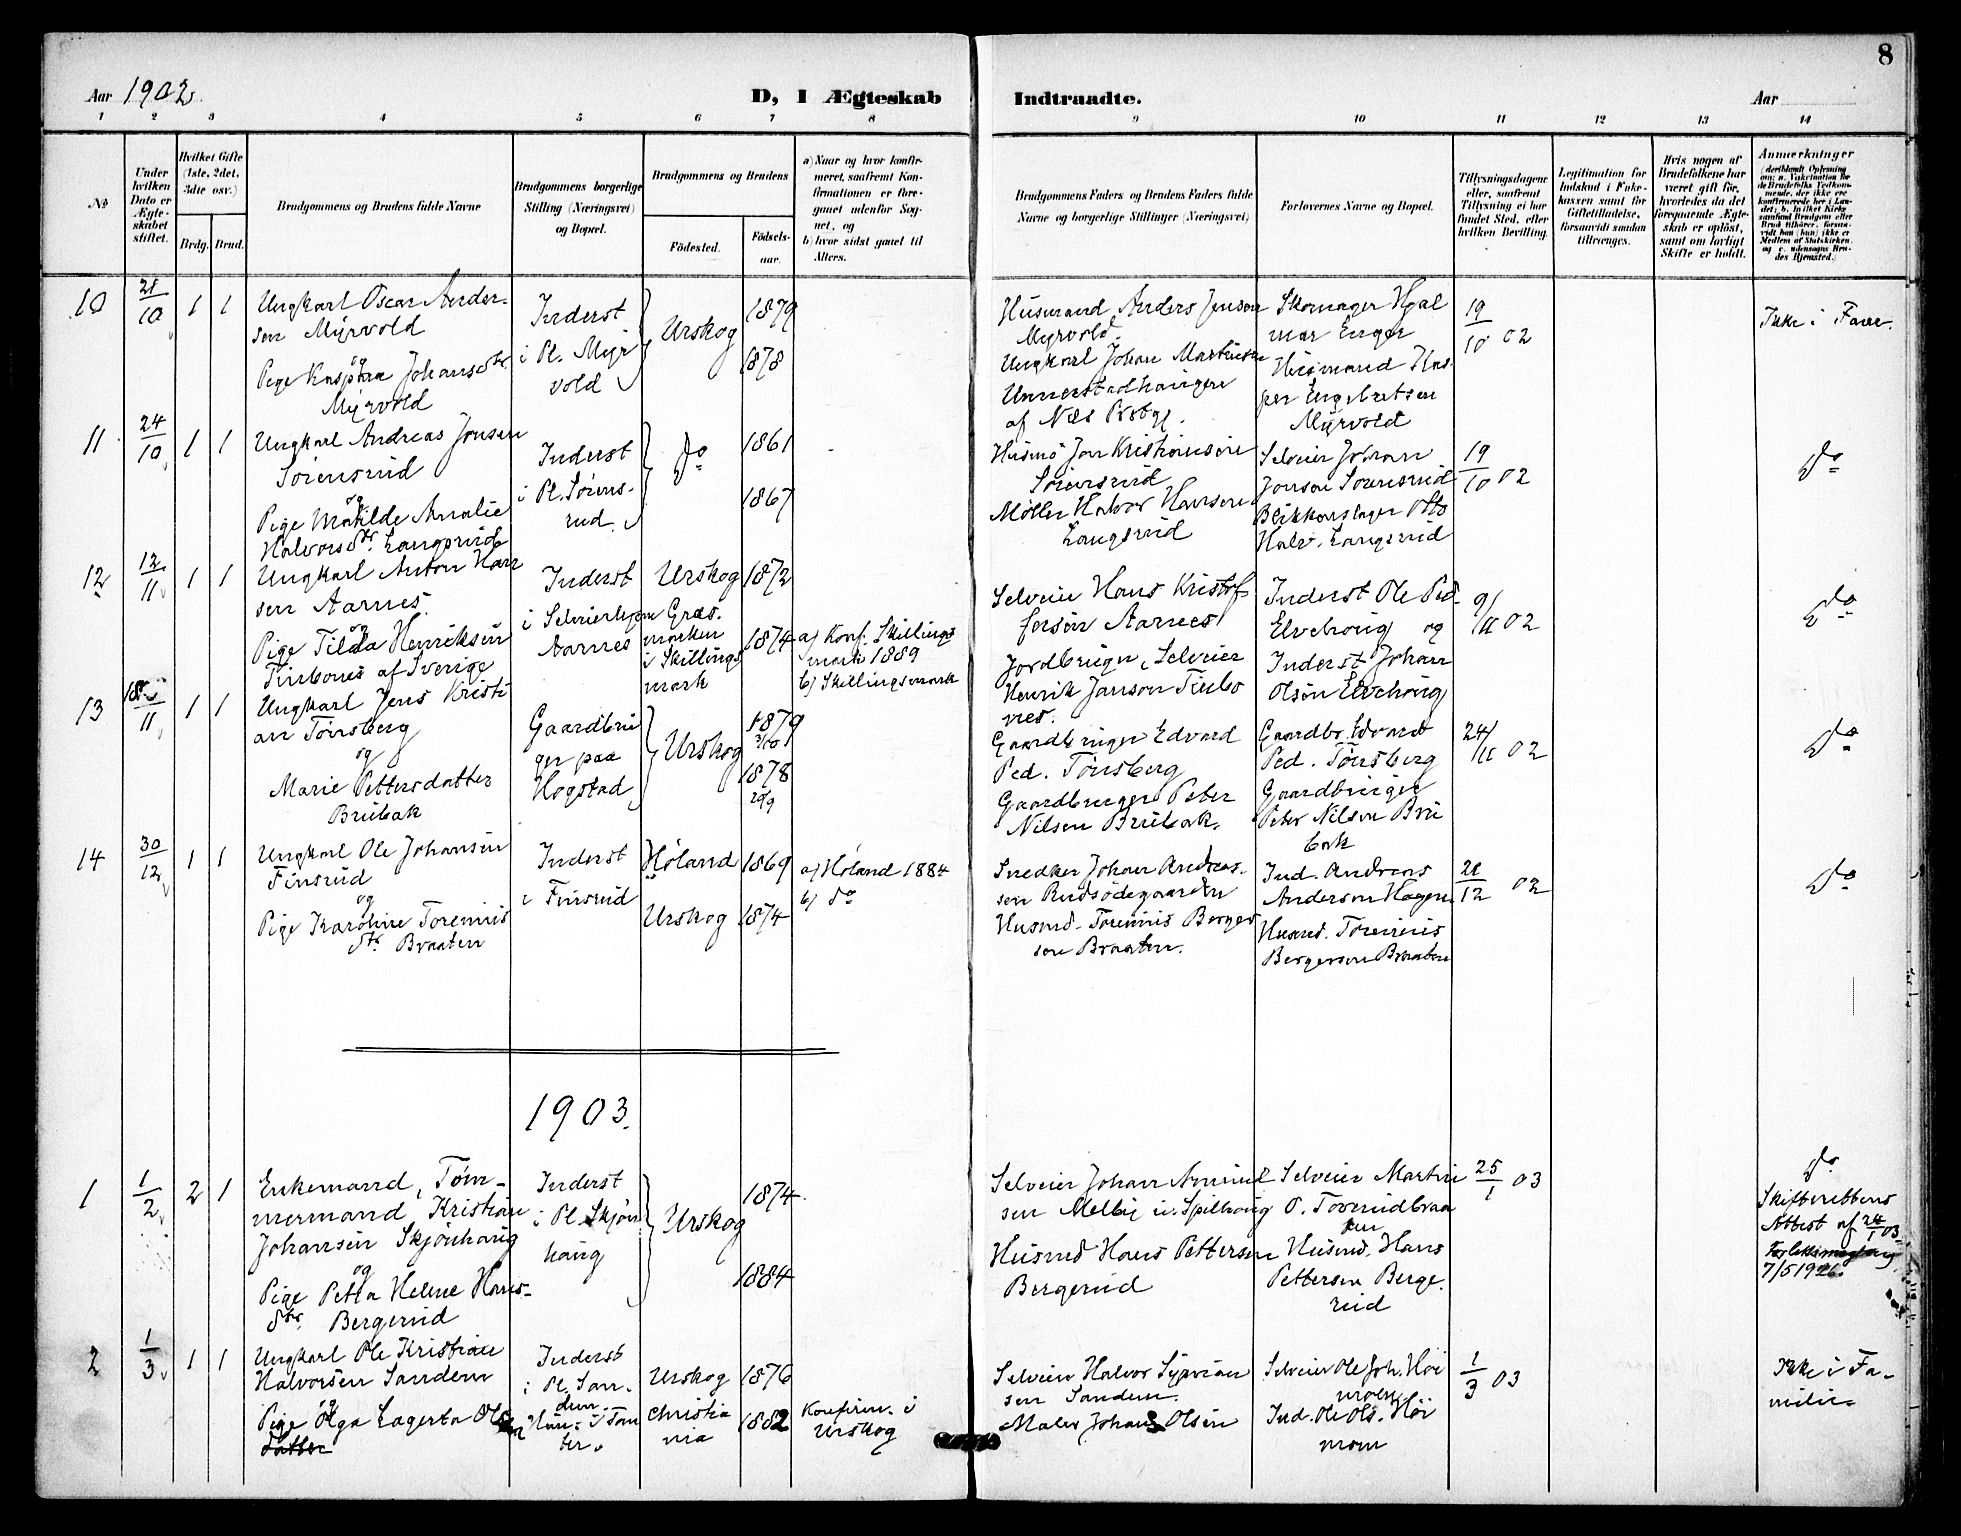 8
Aar 1902.
D, I Ægteskab
Indtraadte.
Aar
1 2 3 4 5 6 7 8 9 10 11 12 13 14
No
Under hvilken Dato er Ægteskabet stiftet.
Hvilket Gifte (1ste, 2det, 3die osv.)
Brdg. Brud.
Brudgommens og Brudens fulde Navne
Brudgommens borgerlige Stilling (Næringsvei) og Bopæl.
Brudgommens og Brudens
Födested.
Födselsaar.
a) Naar og hvor konfirmeret, saafremt Konfirmationen er foregaaet udenfor Sognet, og
b) hvor sidst gaaet til Alters.
Brudgommens Faders og Brudens Faders fulde Navne og borgerlige Stillinger (Næringsvei)
Forlovernes Navne og Bopæl.
Tillysningsdagene eller, saafremt Tillysning ei har fundet Sted, efter hvilken Bevilling.
Legitimation for Indskud i Enkekassen samt for Giftetilladelse, forsaavidt saadan tiltrænges.
Hvis nogen af Brudefolkene har været gift før, hvorledes da det foregaaende Ægteskab er oplöst, samt om lovligt Skifte er holdt.
Anmærkninger
10
21/10
1 1
Ungkarl Oscar Ander-
sen Myrvold
og
Pige Johansdtr.
Myrvold
Inderst
i Pl. Myr
vold
Urskog
1879
1878
Husmand Anders Jensen
Myrvold.
Ungkarl Johan Martinsen
af Næs
Skomager Hjal
mar Enger
Husmand Kas
per Engebretsen
Myrvold
19/10 02
Ikke i Fam.
11
24/10
1 1
Ungkarl Andreas Jonsen
Sörensrud
og
Pige Matilde Amalie
Halvorsdtr. Langsrud
Inderst
i Pl. Sörens-
rud.
Do
1861
1867
Husmd Jon Kristiansen
Sörensrud
Møller Halvor Hansen
Langsrud
Selveier Johan
Jonsen Sörensrud
Blikkenslager Otto
Halv. Langsrud
19/10 02
Do
12
12/11
1 1
Ungkarl Anton Han
sen Aarnes.
og
Pige Tilda Henriksen
Finbones af Sverige
Inderst
i Selveierhjem
Aarnes
Urskog
Græs
marken
i Skillings
mark
1872
1874
a) Konf. Skillings
mark 1889
b) Skillingsmark
Selveier Hans Kristof
fersen Aarnes
Jordbruger, Selveier
Henrik Janson Finbo
nes.
Inderst Ole Ped.
Elvehoug og
Inderst Johan
Olsön Elvehoug
9/11 02
Do
13
18/11
1 1
Ungkarl Jens Kristi
an Tönsberg
og
Marie Pettersdatter
Brubak
Gaardbru
ger paa
Hogstad
Urskog
1879
3/10
1878
20/9
Gaardbruger Edvard
Ped. Tönsberg
Gaardbruger Peter
Nilsen Brubak.
Gaardbr. Edvard
Ped. Tönsberg
Gaardbruger
Peter Nilsen Bru
bak
24/11 02
Do
14
30/12
1 1
Ungkarl Ole Johansen
Finsrud
og
Pige Karoline Torennis
dtr. Braaten
Inderst
i Finsrud
Höland
Urskog
1869
1874
a) Höland 1884
b) do
Snedker Johan Andreas-
sen Rudsödegaarden
Husmd. Torennis Berger
sen Braaten.
Ind. Andreas
Andersen Hagen
Husmd. Torennis
Bergersen Braaten
21/12 02
Do
1903.
1
1/2
2 1
Enkemand, Töm-
mermand, Kristian
Johansen Skjönhaug
og
Pige Petra Helene Hans-
dtr. Bergerud
Inderst
i Pl. Skjön
haug
Urskog
1874.
1884
Selveier Johan Amund
sen Melby u. Spilhaug
Husmd Hans Pettersen
Bergerud
Selveier Martin
O. Toverudbraa
ten
Husmd. Hans
Pettersen Berge.
rud
25/1 03
Do
Skifterettens
Attest af 24/1 03.
7/5 1926.
2
1/3
1 1
Ungkarl Ole Kristian
Halvorsen Sandem
og
Pige Olga Lagerta Olsen
datter
Inderst
i Pl. San.
dem.
Hun: i Tom
ter.
Urskog
Christia
nia
1876
1882
Konfirm. i
Urskog
Selveier Halvor Syvran
sen Sandem.
Maler Johans Olsen
Selveier Ole Joh. Höi
moen
Ind. Ole Ols. Höi
moen
1/3 03
Ikke i Fa-
milie